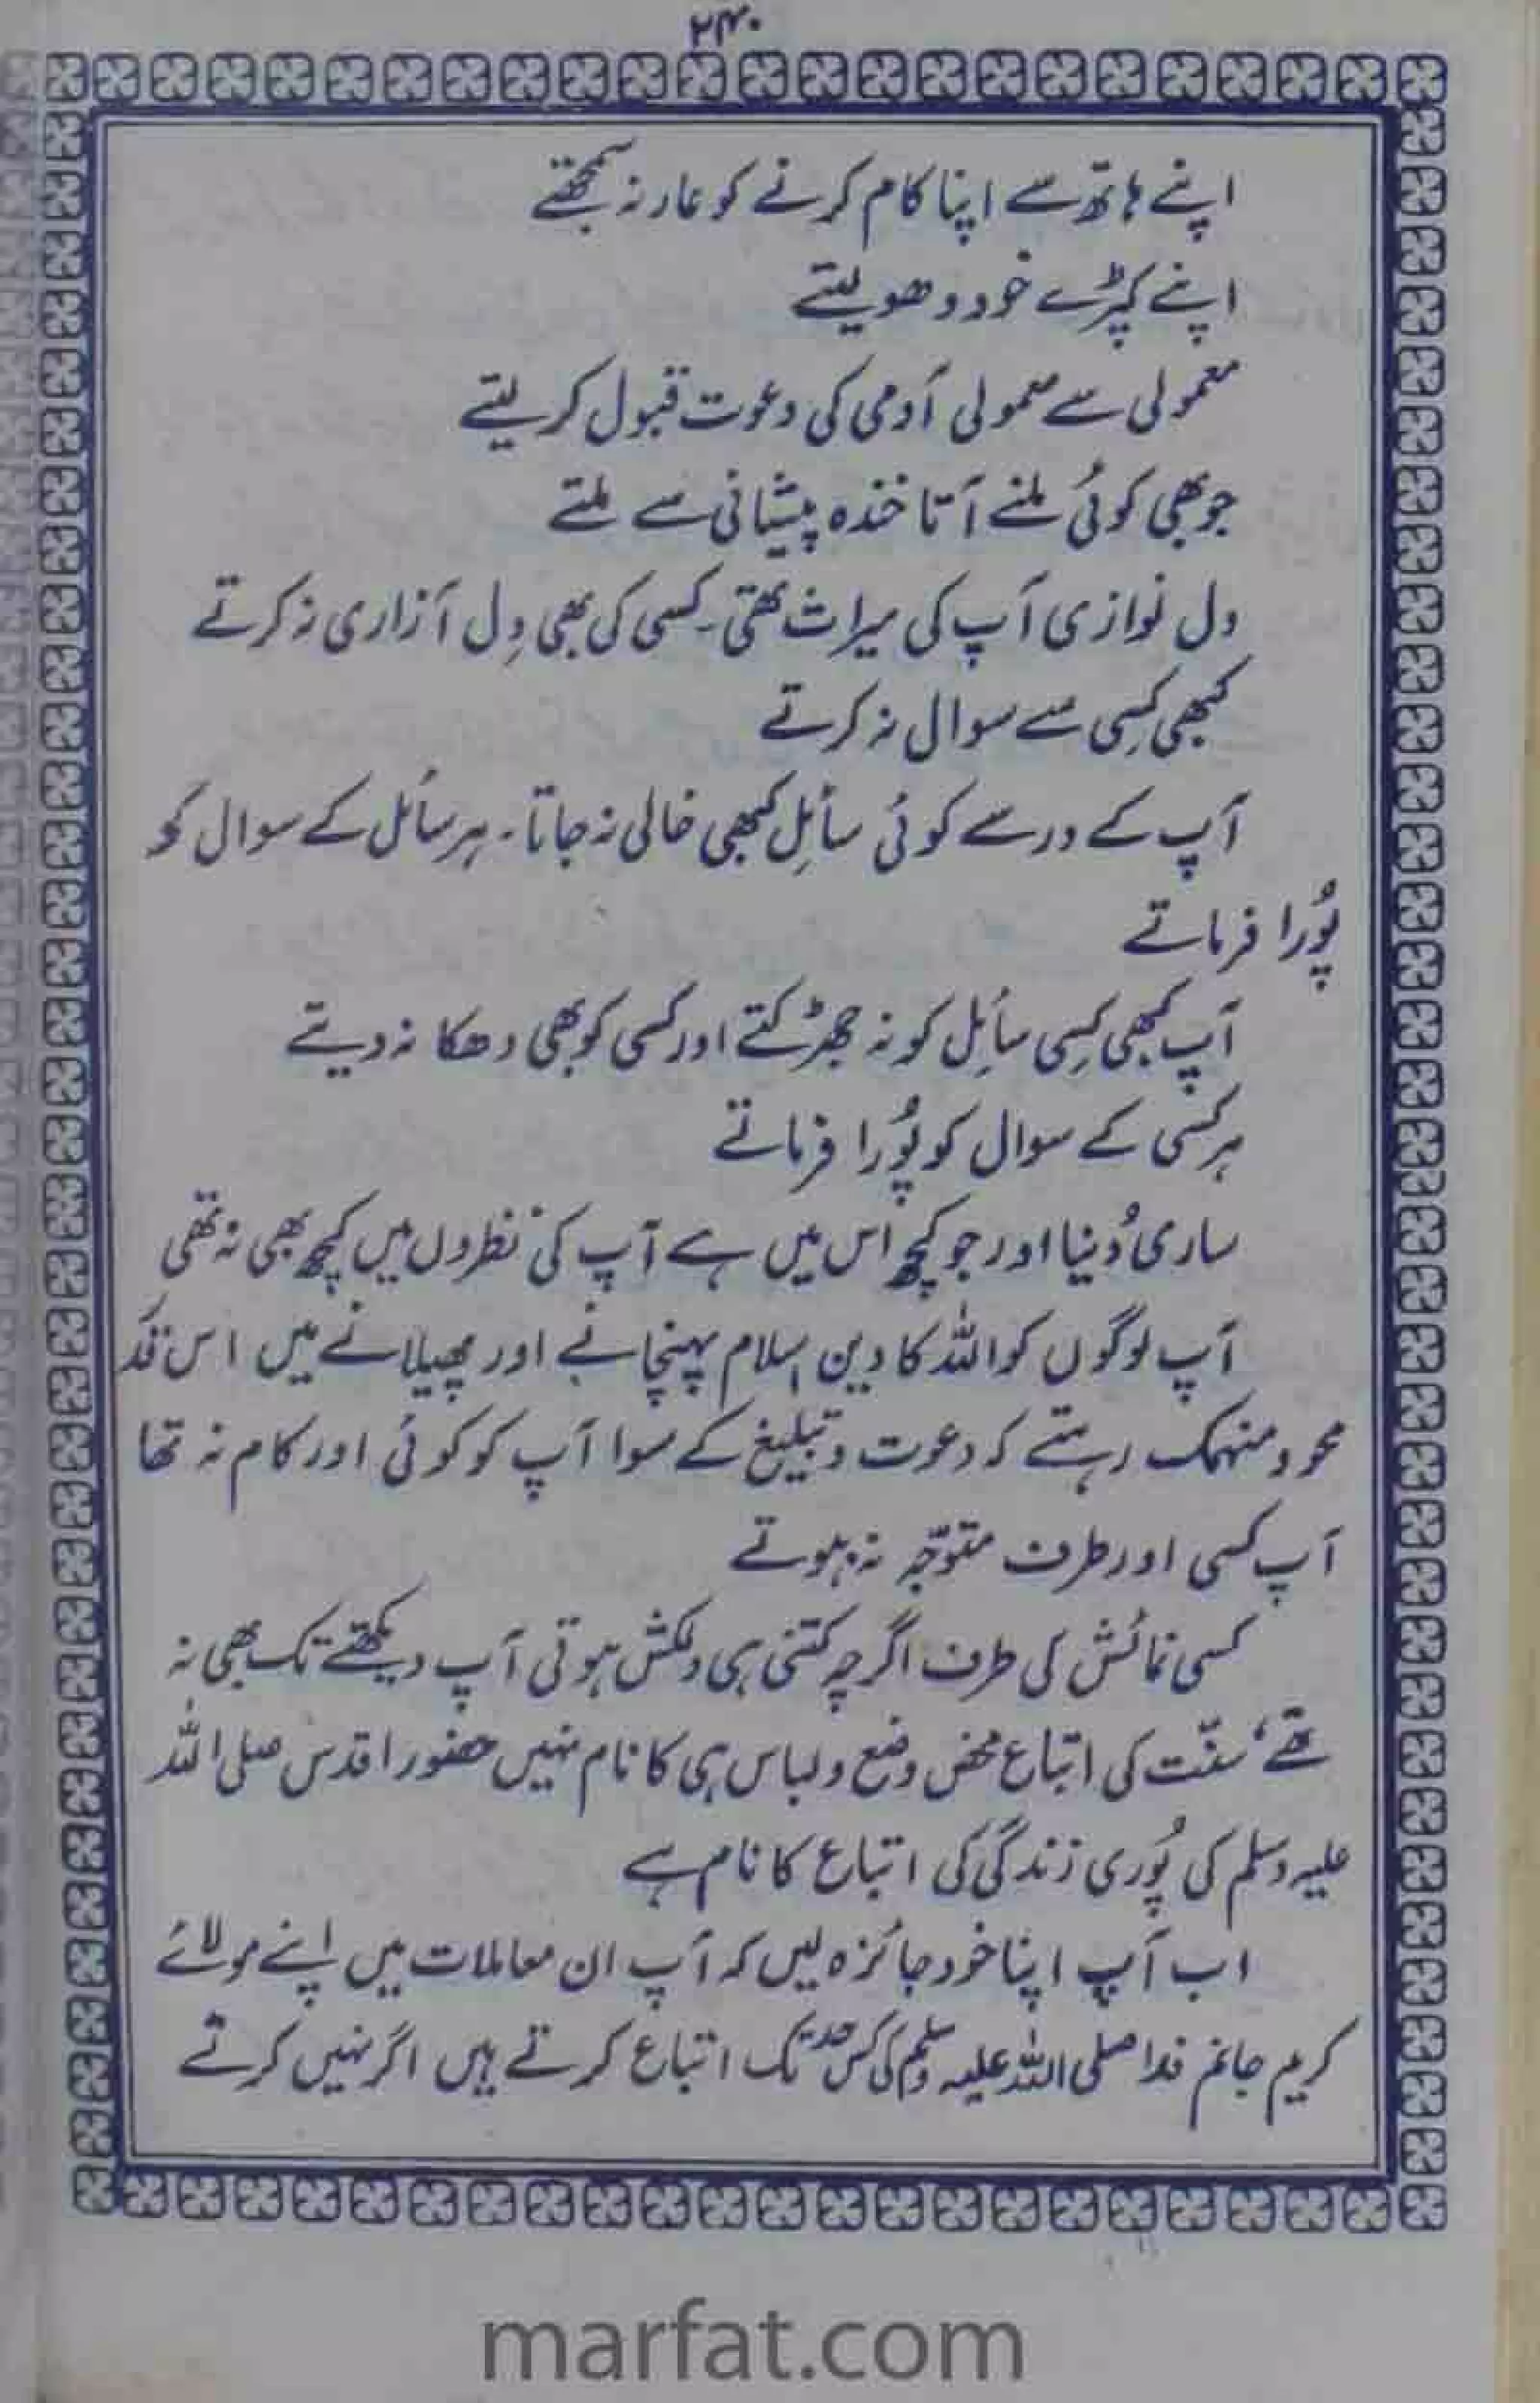 ۲۴۰
اپنے ہاتھ سے اپنا کام کرنے کو عار نہ سمجھتے
اپنے کپڑے خود دھو لیتے
معمولی سے معمولی آدمی کی دعوت قبول کر لیتے
جو بھی کوئی ملنے آتا خندہ پیشانی سے ملتے
دل نوازی آپ کی میراث تھی۔ کسی کی بھی دِل آزاری نہ کرتے
کبھی کِسی سے سوال نہ کرتے
آپ کے در سے کوئی سائِل کبھی خالی نہ جاتا۔ ہر سائل کے سوال کو
پُورا فرماتے
آپ کبھی کِسی سائِل کو نہ جھڑکتے اور کسی کو بھی دھکا نہ دیتے
ہر کسی کے سوال کو پُورا فرماتے
ساری دُنیا اور جو کچھ اس میں ہے آپ کی نظروں میں کچھ بھی نہ تھی
آپ لوگوں کو اللہ کا دین اسلام پہنچانے اور پھیلانے میں اس قدر
محو و منہمک رہتے کہ دعوت و تبلیغ کے سوا آپ کو کوئی اور کام نہ تھا
آپ کسی اور طرف متوجّہ نہ ہوتے
کسی نمائش کی طرف اگرچہ کتنی ہی دلکش ہوتی آپ دیکھتے تک بھی نہ
تھے، سنّت کی اتباع محض وضع و لباس ہی کا نام نہیں حضور اقدس صلی اللہ
علیہ وسلم کی پُوری زندگی کی اتباع کا نام ہے
اب آپ اپنا خود جائزہ لیں کہ آپ ان معاملات میں اپنے مولائے
کریم جانم فدا صلی اللہ علیہ وسلم کی کس حد تک اتباع کرتے ہیں اگر نہیں کرتے
marfat.com